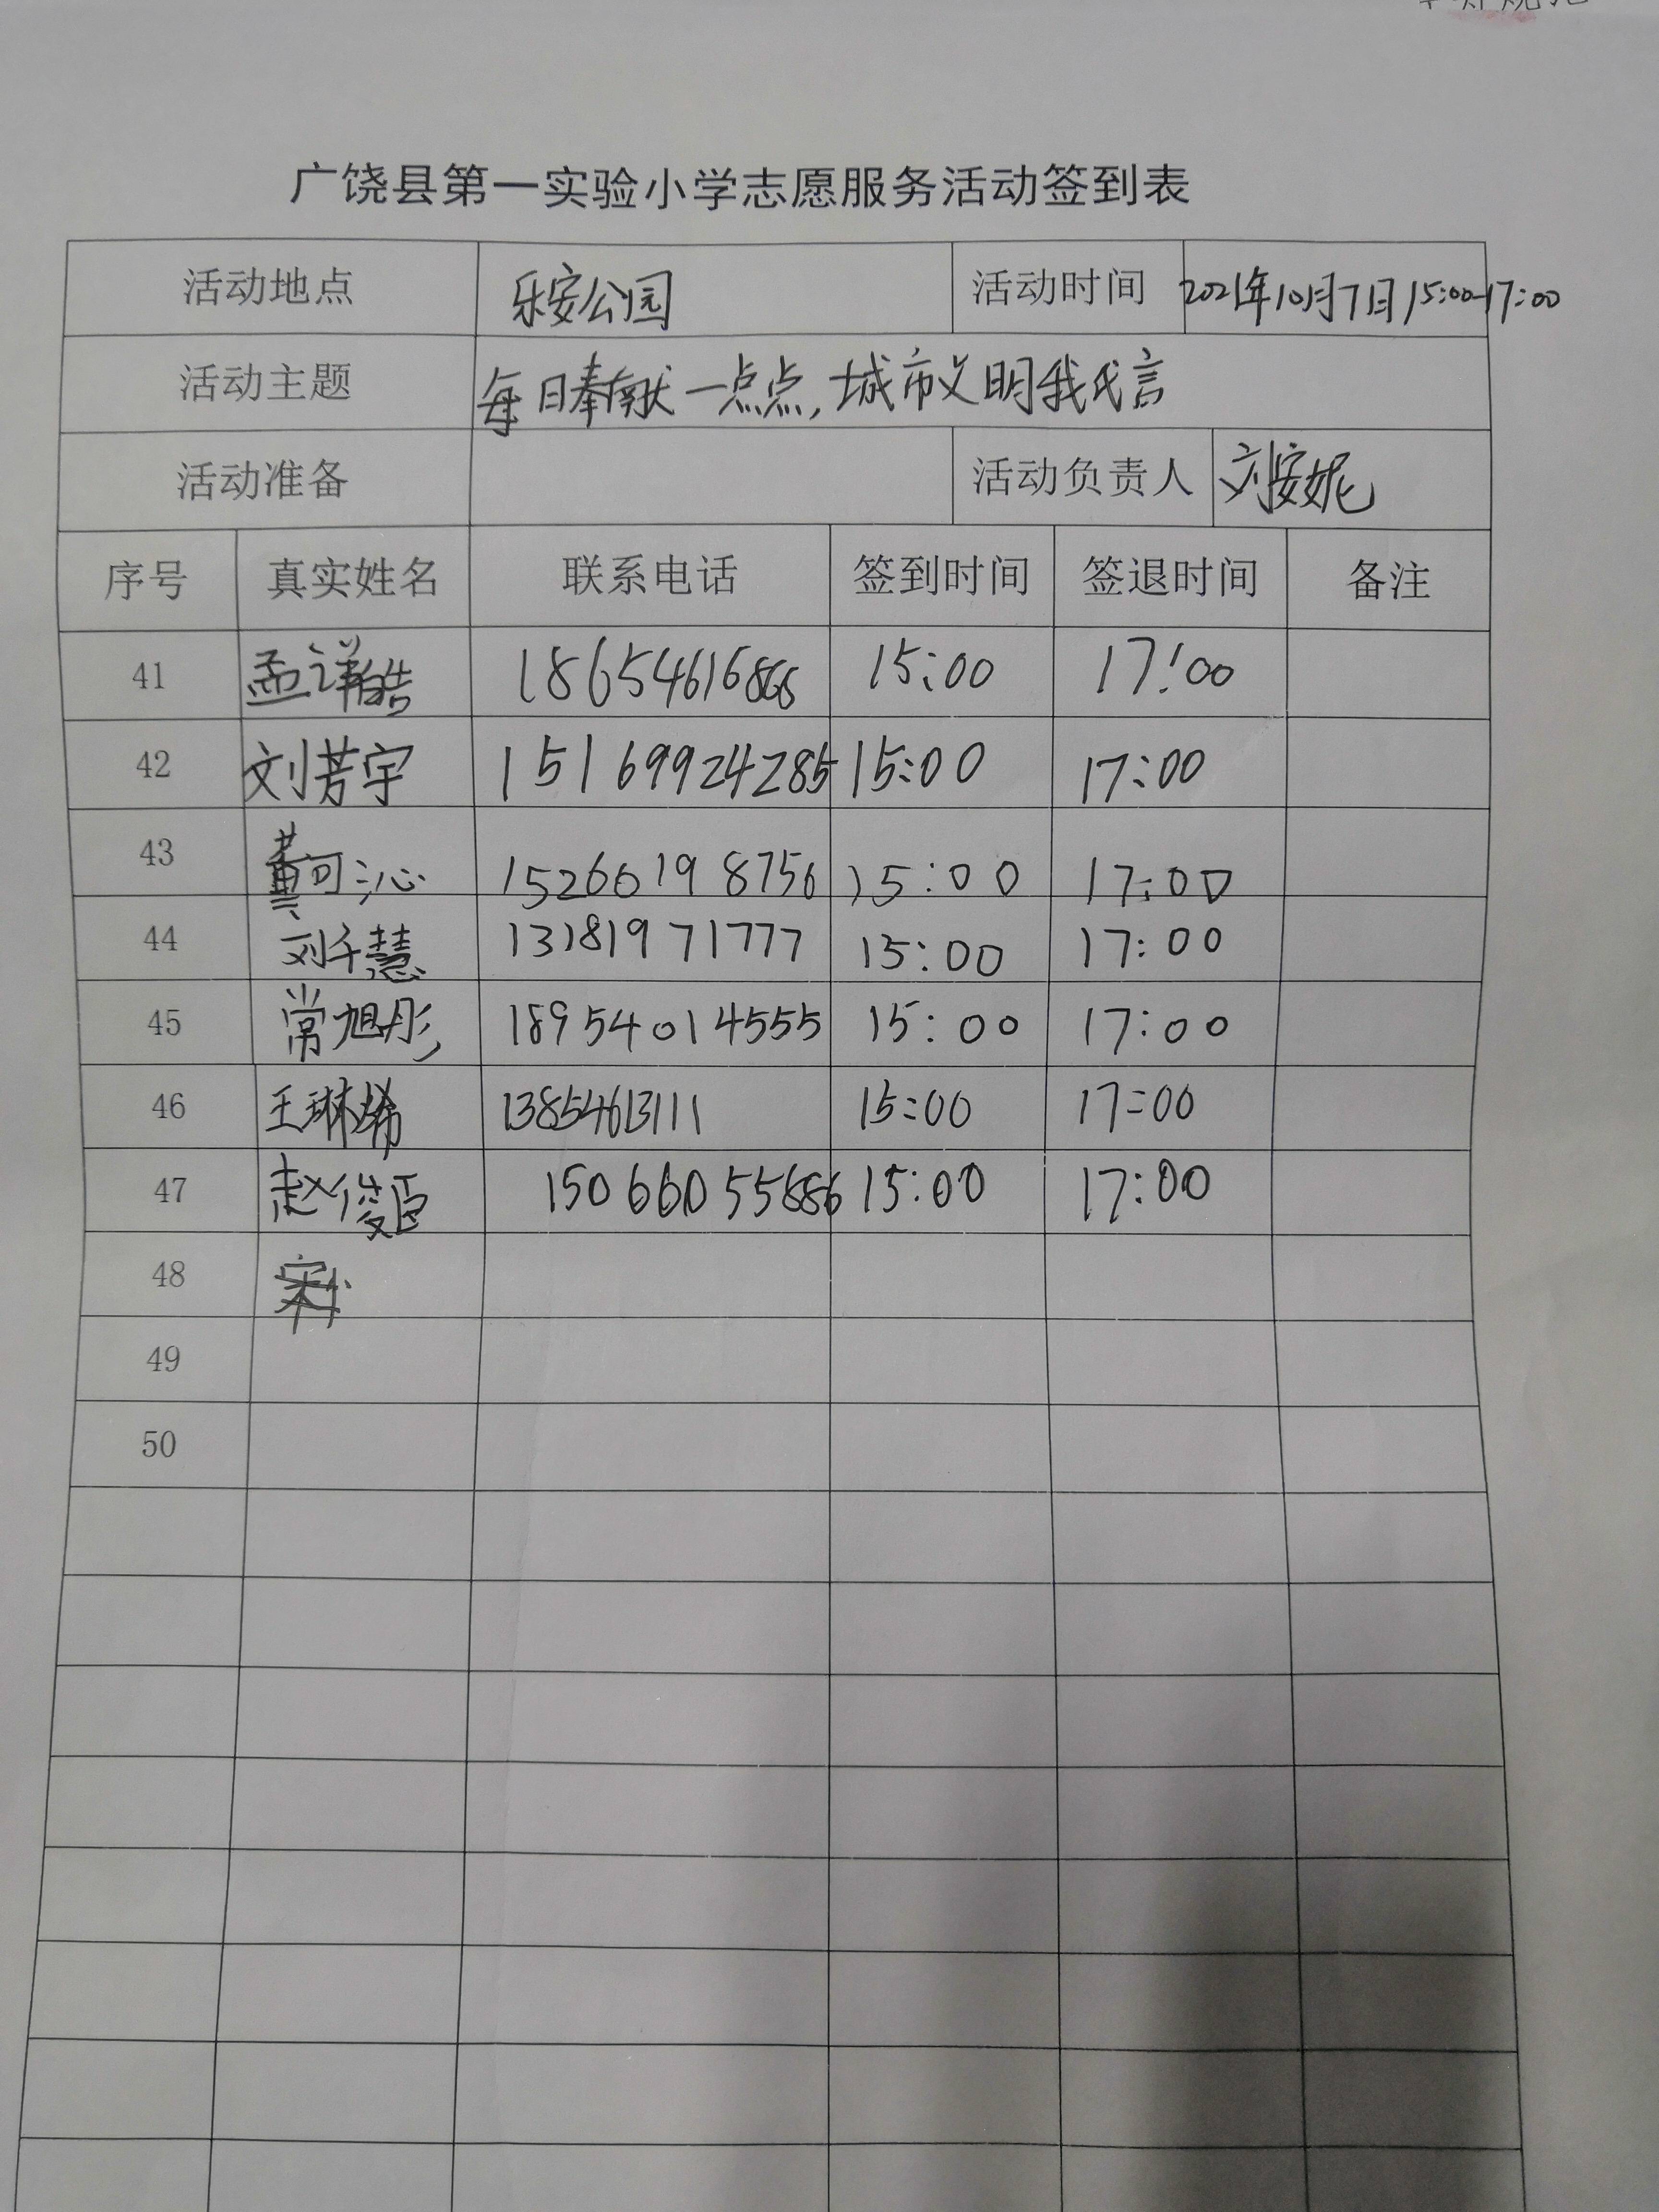 广饶县第一实验小学志愿服务活动签到表
活动地点 乐安公园 活动时间 2021年10月7日15:00-17:00
活动主题 每日奉献一点点,城市文明我代言
活动准备 活动负责人 刘安妮
序号 真实姓名 联系电话 签到时间 签退时间 备注
41 孟祥皓 18654616866 15:00 17:00
42 刘芳宇 15169924285 15:00 17:00
43 黄可沁 15266198756 15:00 17:00
44 刘千慧 13181971777 15:00 17:00
45 常旭彤 18954014555 15:00 17:00
46 王琳烯 1385463111 15:00 17:00
47 赵俊臣 15066055686 15:00 17:00
48
49
50